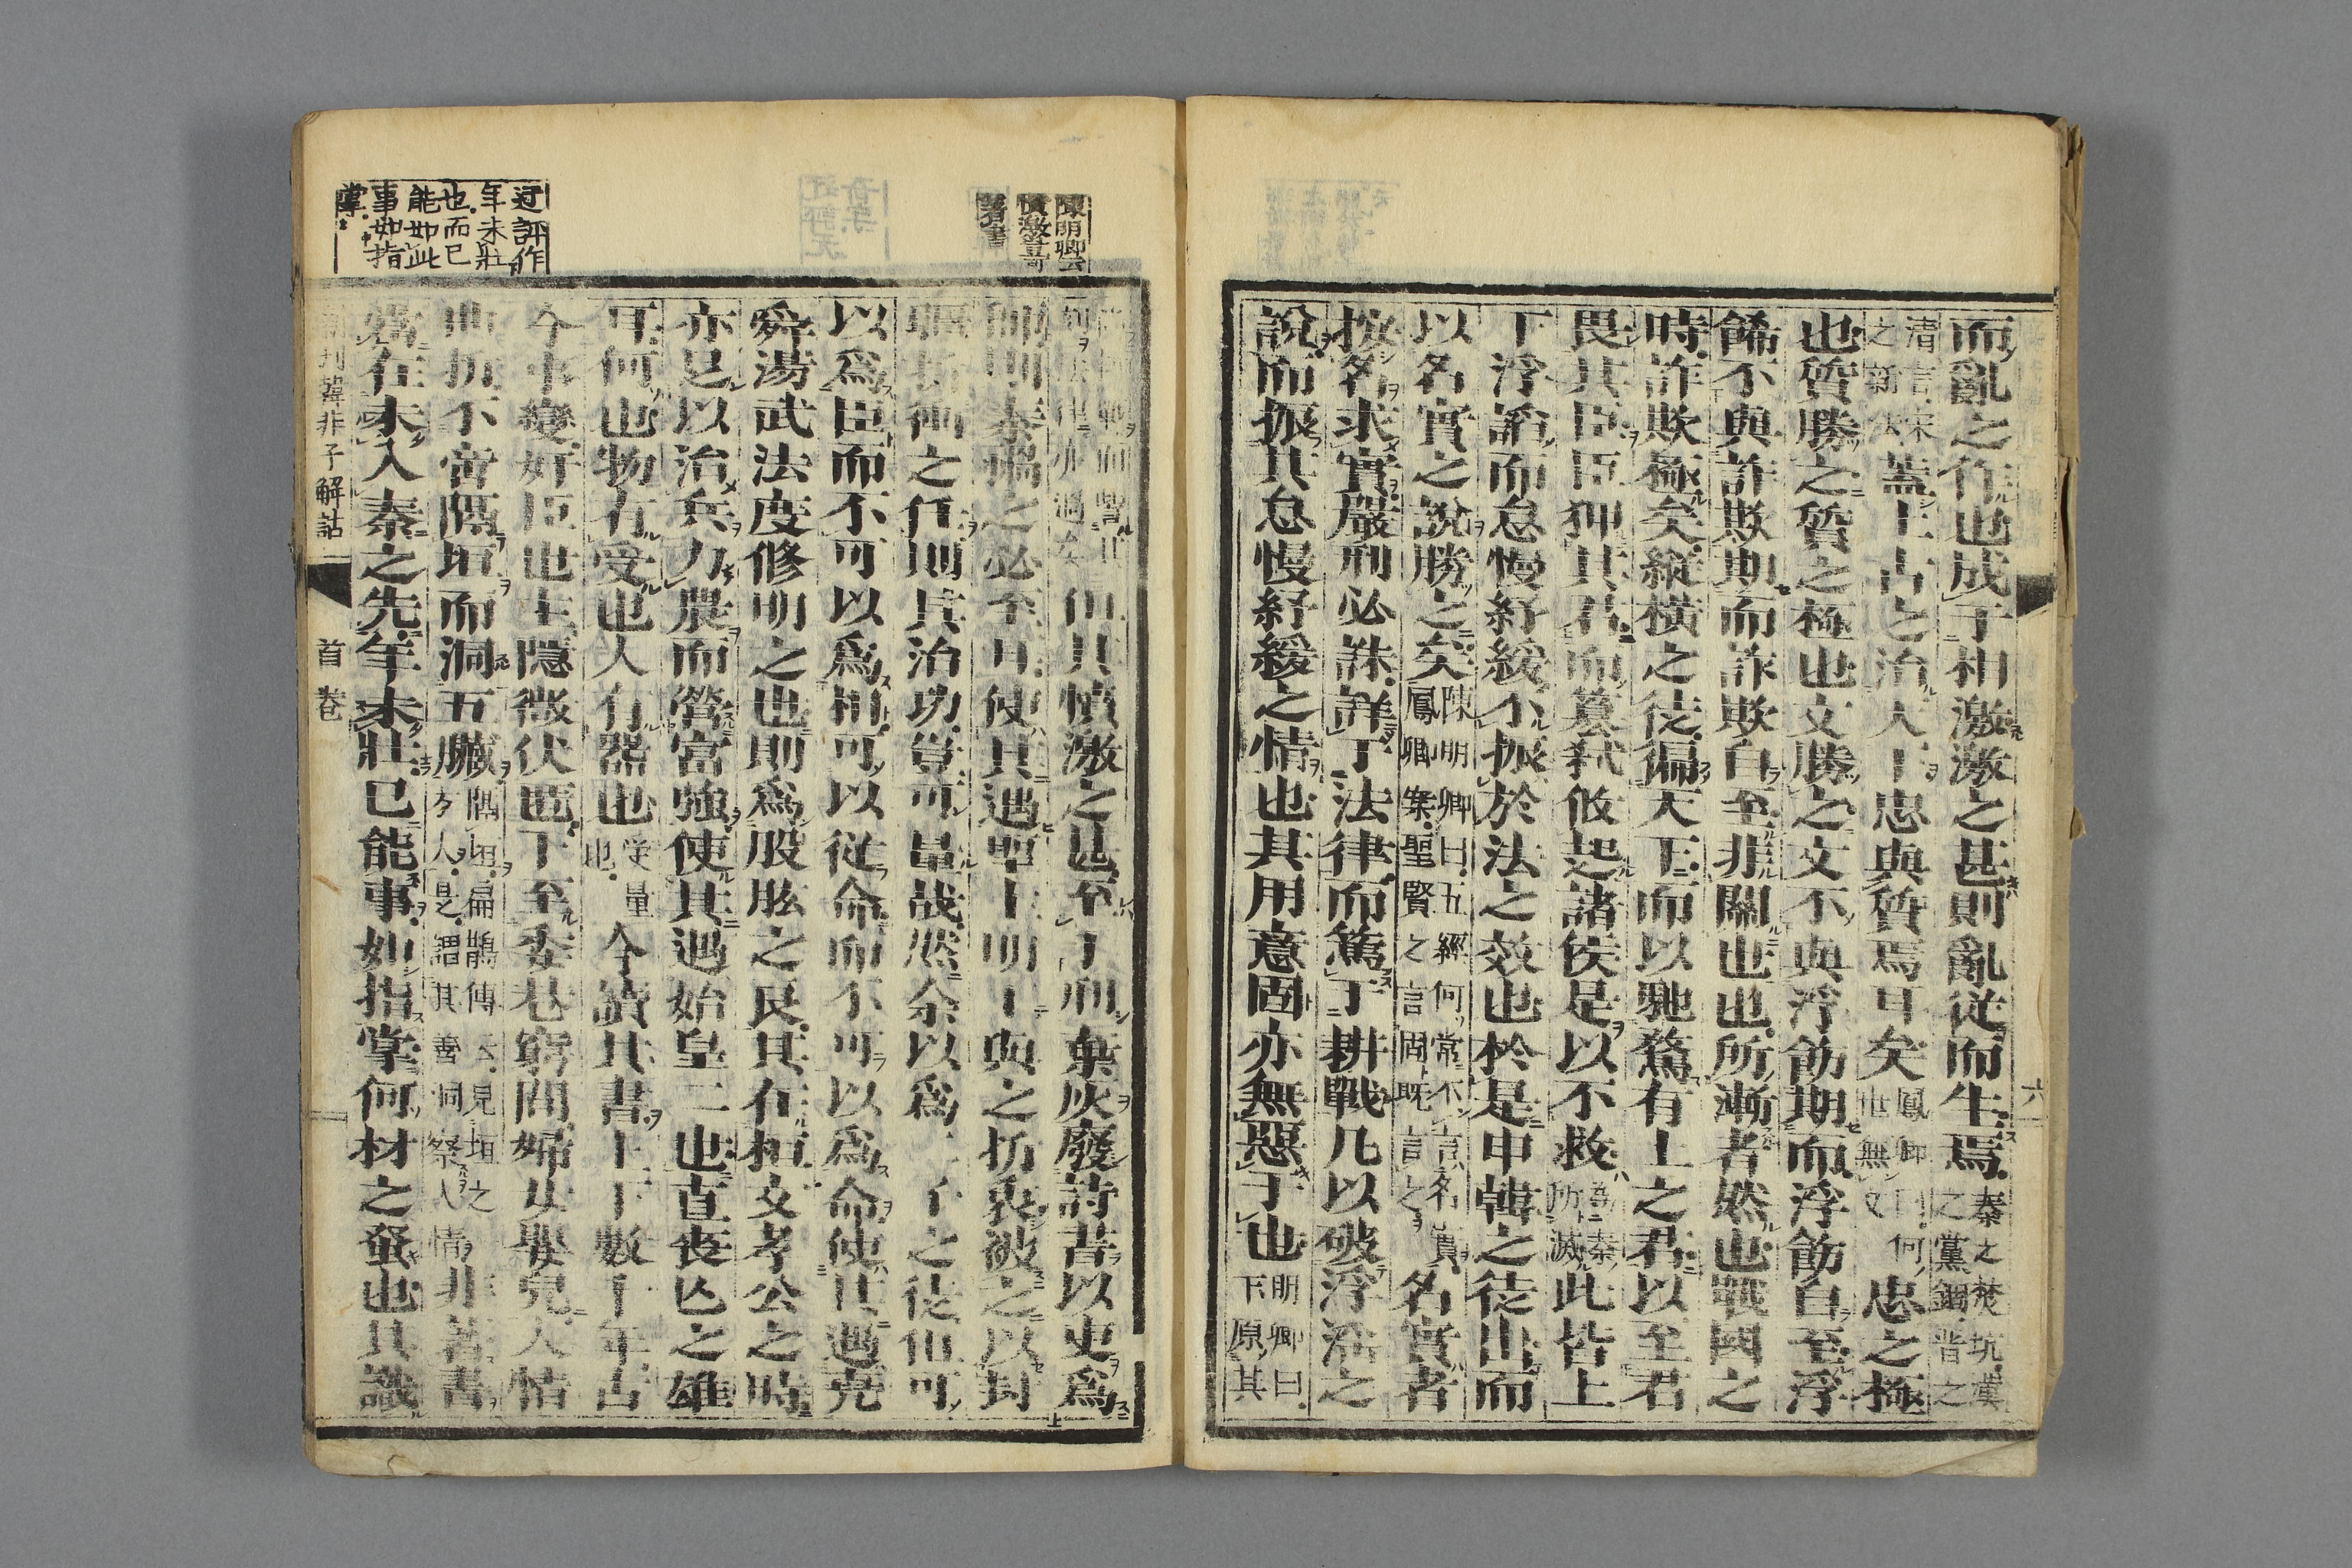 而亂之作也成于相激激之甚則亂從而生焉秦之焚坑漢之黨錮晋之
清言宋之新法蓋上古之治天下忠與質焉耳矣鳳卿曰何世無文忠之極
也質勝之質之極也文勝之文不與浮飭期而浮飭自至浮
餙不與詐欺期而詐欺自至非關也也所漸者然也戰國之
時詐欺極矣縱横之徒徧天下而以馳騖有上之君以至君
畏其臣臣狎其君而簒弑攸起諸侯是以不救爲秦所滅此皆上
下浮諂而怠慢紓緩不振於法之效也於是申韓之徒出而
以名實之說勝之矣陳明卿曰五經何常不言名實鳳卿案聖賢之言固既言之名實者
按名求實嚴刑必誅詳于法律而篤于耕戰凡以破浮滔之
說而振其怠慢紓緩之情也其用意固亦無惡于也明卿曰下原其
六
陳明卿云
憤激豈可
著書
但其憤激之甚至于刑棄灰廢詩書以吏爲
師則秦禍之必至且使其遇聖主明王與之折衷被之以封
疆折衝之任則其治功豈可量哉然余以爲
子之徒但可
以爲臣而不可以爲相可以從命而不可以爲命使其遇堯
舜湯武法度修明之也則爲股肱之良其在桓文孝公之時
亦足以治兵力農而營富強使其遇始皇二也直喪亾之雄
耳何也物有受也人有器也受量也今讀其書上下數千年古
今事變奸臣也主隱微伏匿下至委巷窮閭婦女嬰兒人情
曲折不啻隔垣而洞五臟隔垣扁鵲傳云見垣之方人是謂其善洞察人情非著書
當在未入秦之先年未壯已能事如指掌何材之蚤也其識
迂評作
年未壯
也而已
能如此
事如指
掌
新刊韓非子解詁
首卷